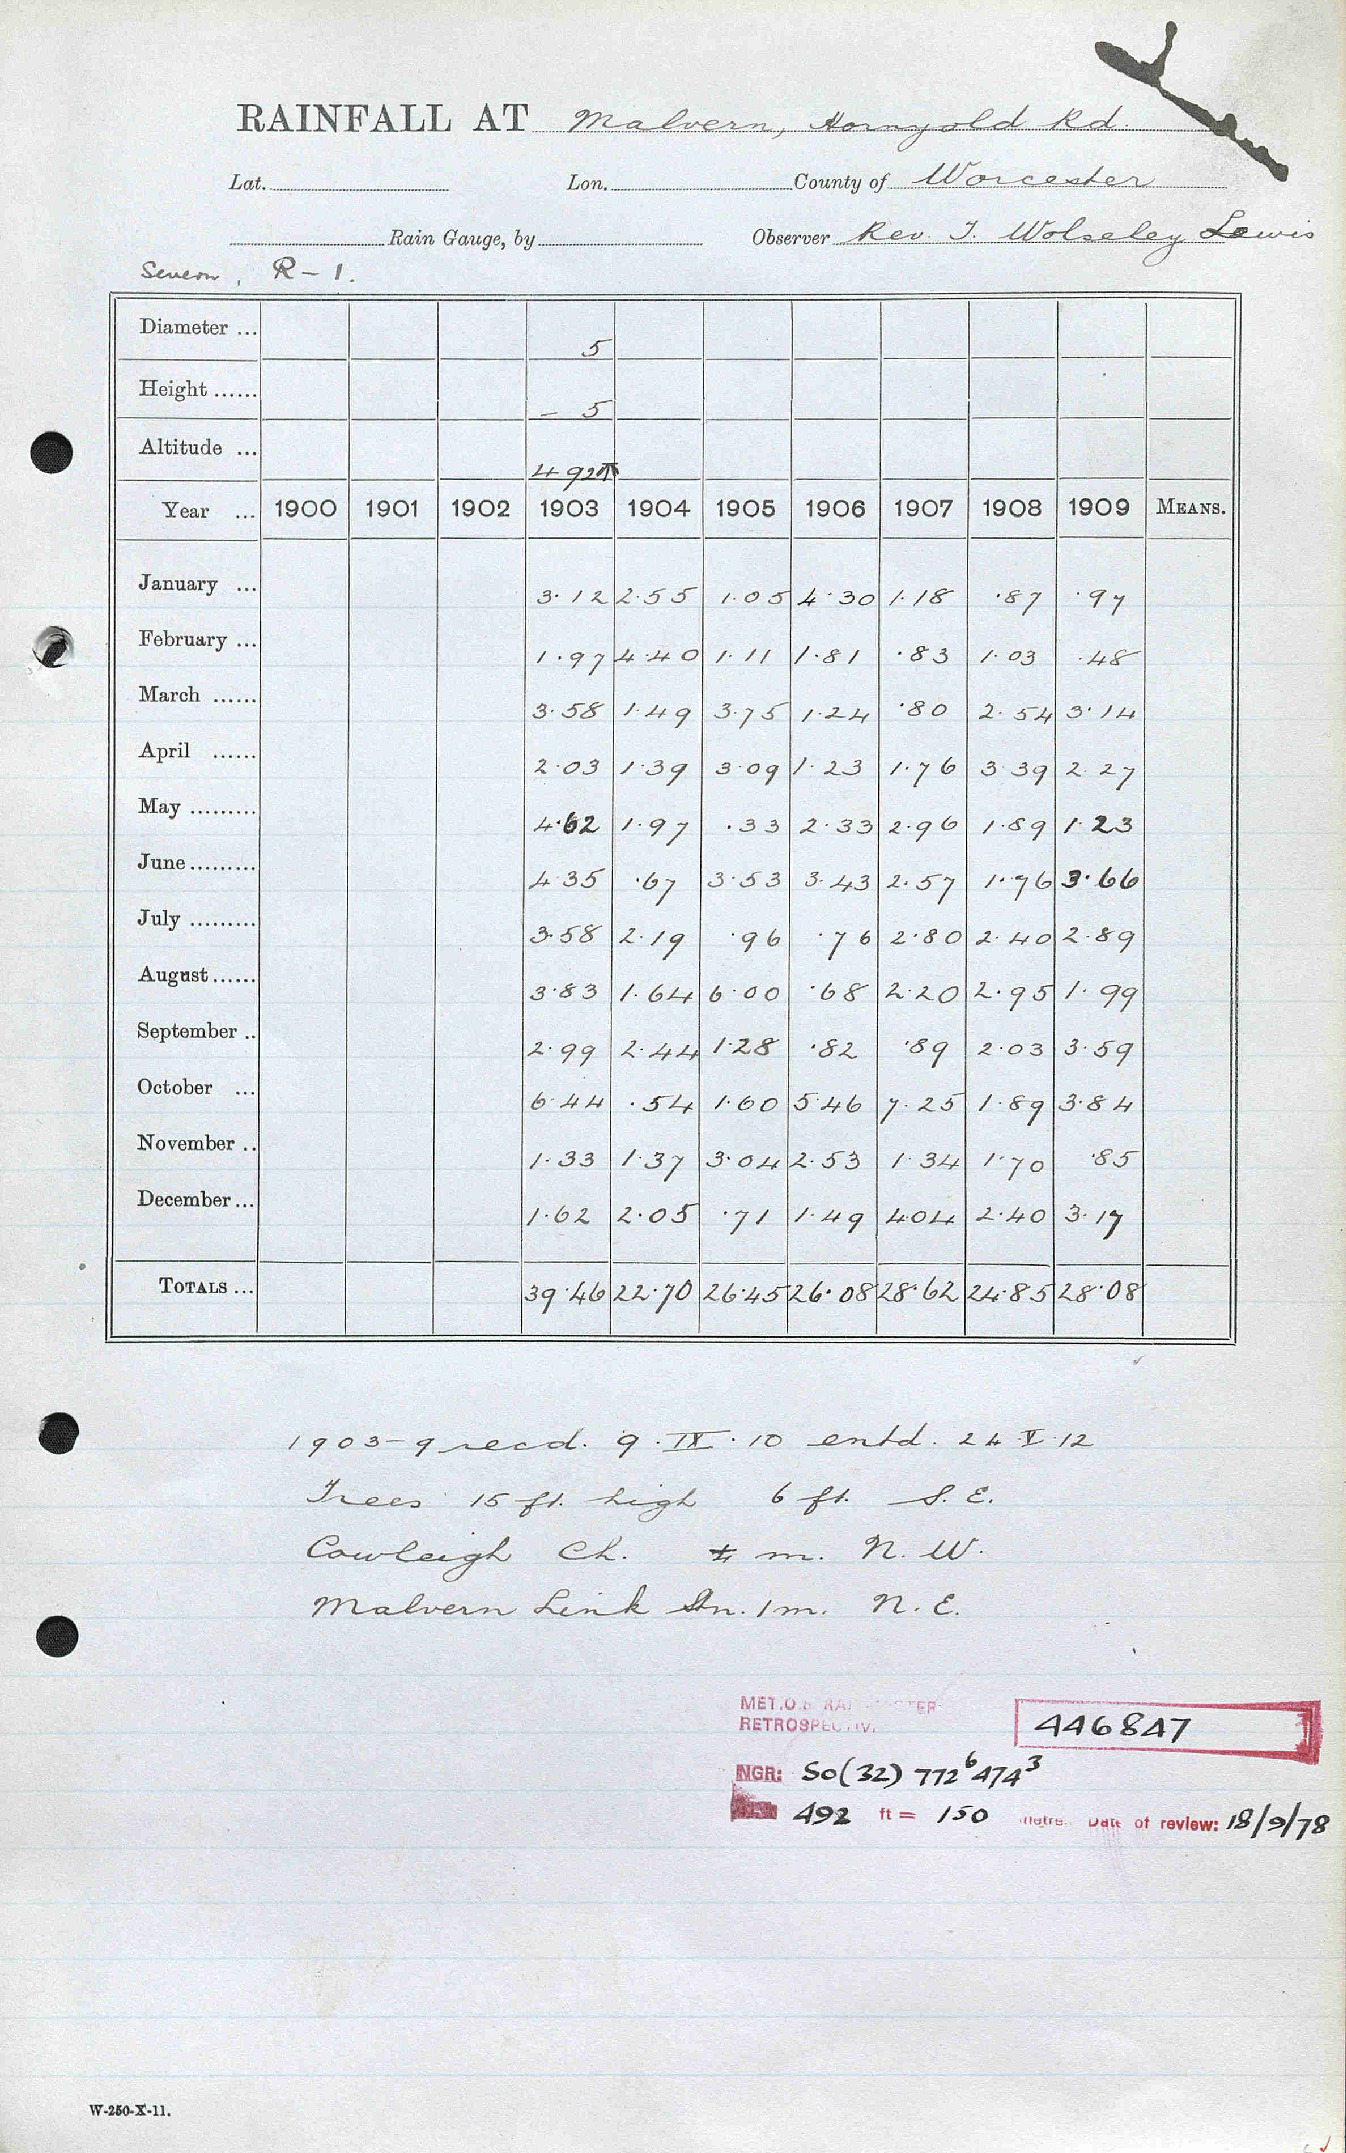 RAINFALL AT Malvern, Hornyold Rd.
Lat. Lon. County of Worcester
Rain Gauge, by Observer Rev. T. Wolseley Lewis
Severn, R-1.
Diameter ... 5
Height ...... - 5
Altitude ... 492T
Year ... 1900 1901 1902 1903 1904 1905 1906 1907 1908 1909 MEANS.
January ... 3.12 2.55 1.05 4.30 1.18 .87 .97
February ... 1.97 4.40 1.11 1.81 .83 1.03 .48
March ...... 3.58 1.49 3.75 1.24 .80 2.54 3.14
April ...... 2.03 1.39 3.09 1.23 1.76 3.39 2.27
May ......... 4.62 1.97 .33 2.33 2.96 1.89 1.23
June ......... 4.35 .67 3.53 3.43 2.57 1.76 3.66
July ......... 3.58 2.19 .96 .76 2.80 2.40 2.89
August ...... 3.83 1.64 6.00 .68 2.20 2.95 1.99
September .. 2.99 2.44 1.28 .82 .89 2.03 3.59
October ... 6.44 .54 1.60 5.46 7.25 1.89 3.84
November .. 1.33 1.37 3.04 2.53 1.34 1.70 .85
December ... 1.62 2.05 .71 1.49 4.04 2.40 3.17
TOTALS ... 39.46 22.70 26.45 26.08 28.62 24.85 28.08
1903-9 recd. 9.IX.10 entd. 24 V.12
Trees 15 ft. high 6 ft. S.E.
Cowleigh Ch. m. N.W.
Malvern Link Sn. 1 m. N.E.
MET.O.
RETROSPECTIV
446847
NGR: SO(32) 772⁶474³
492 ft = 150 metre Date of review: 18/9/78
W-250-X-11.